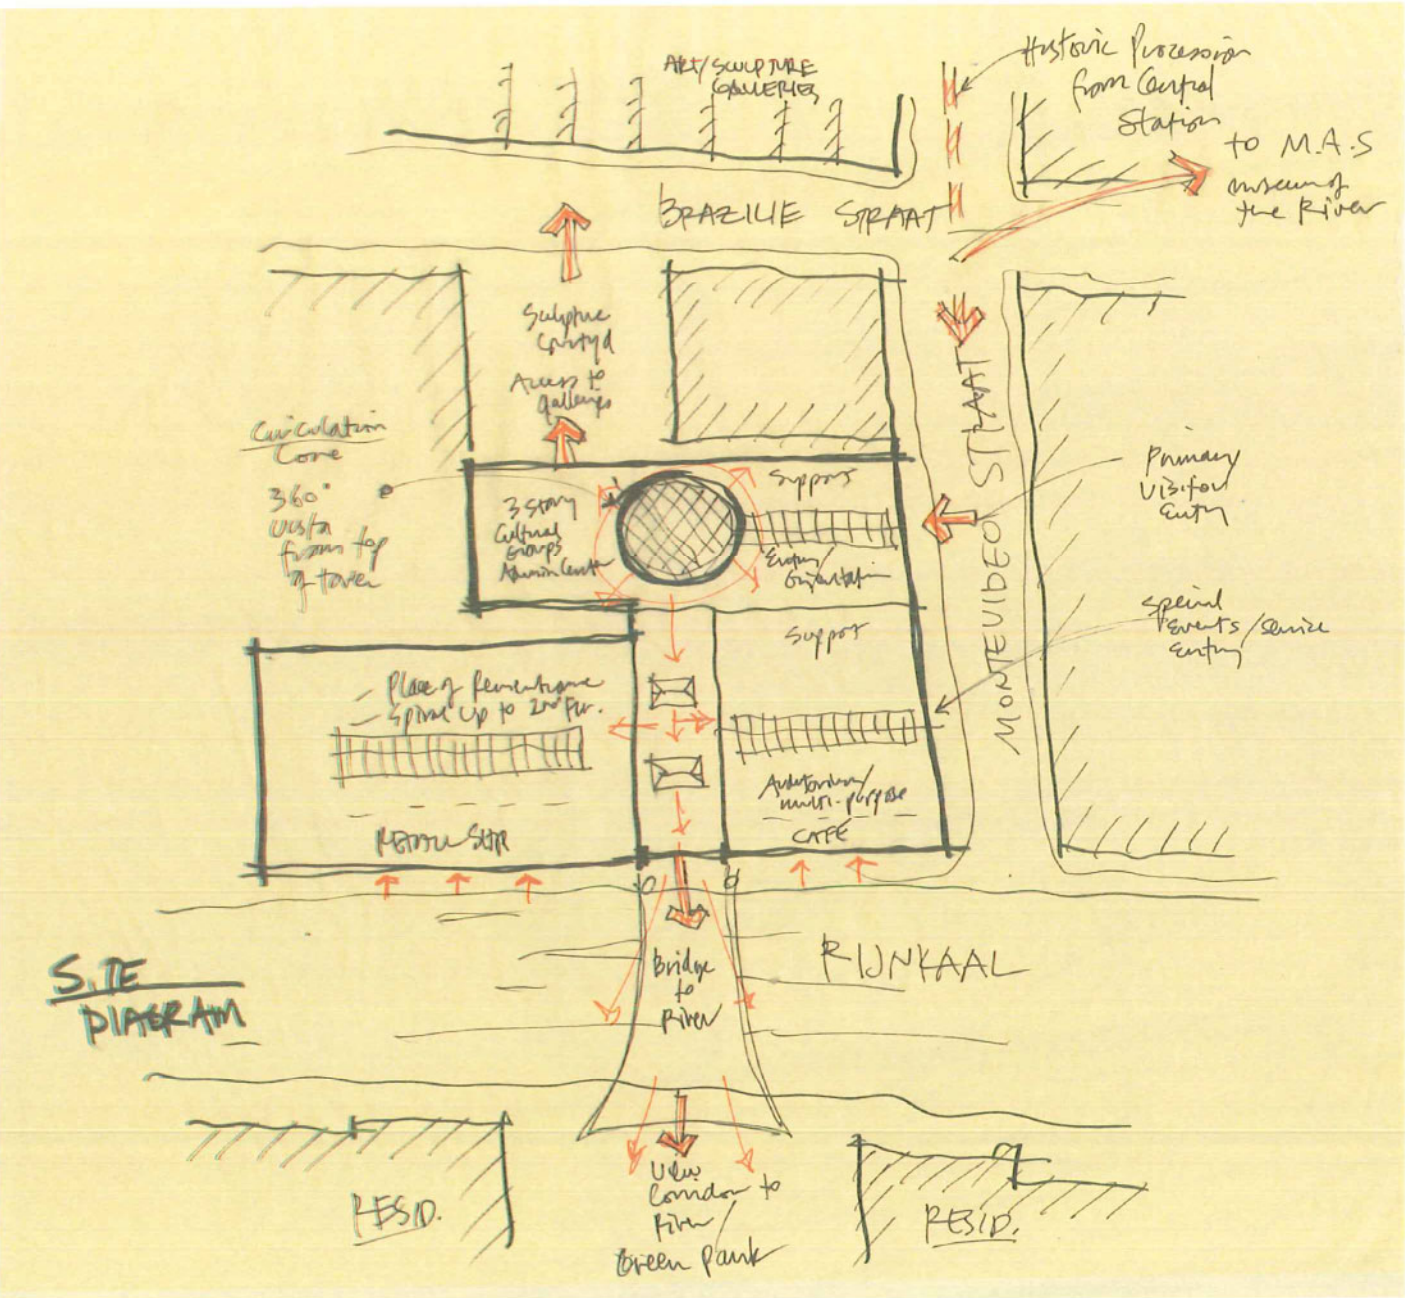 ART/SCULPTURE
GALLERIES
Historic Procession
from Central
Station
to M.A.S
museum of
the River
BRAZILIE STRAAT
Sculpture
Courtyd
Access to
galleries
Circulation
Core
360°
vista
from top
of tower
3 Story
Cultural
Groups
Admin Center
Support
Entry/
Orientation
MONTEVIDEO STRAAT
Primary
Visitor
Entry
Special
Events/Service
Entry
Support
Place of Remembrance
Spiral up to 2nd Flr.
Auditorium/
multi-purpose
CAFE
RETAIL SHP
SITE
DIAGRAM
Bridge
to
River
RIJNKAAL
View
Corridor to
River/
Green Park
RESID.
RESID.